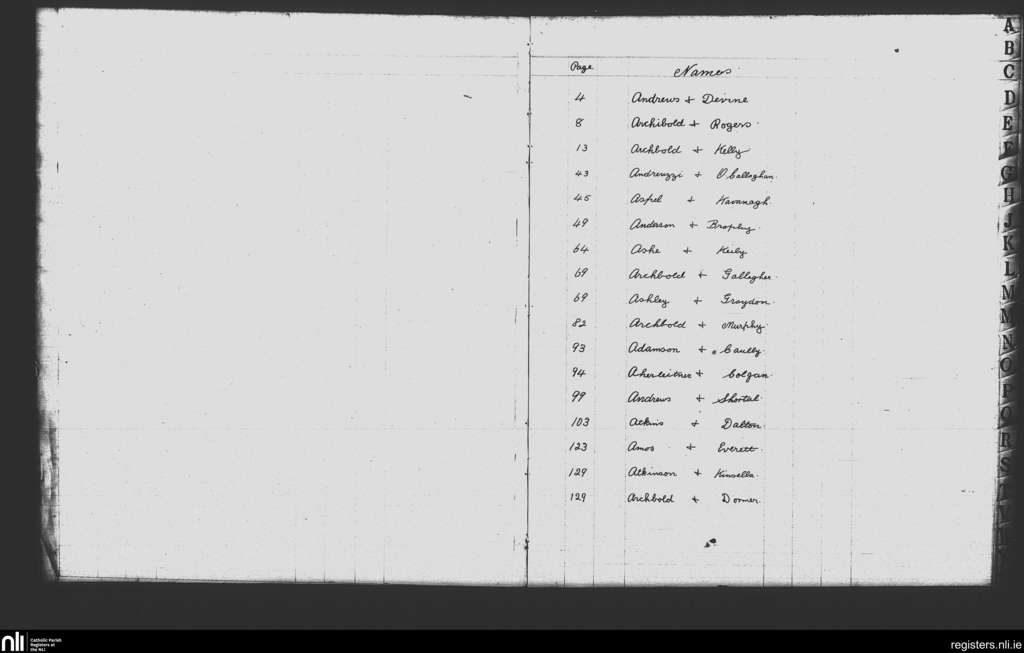 Page Names
4 Andrews + Devine
8 Archibold + Rogers
13 Archbold + Kelly
43 Andreuzzi + O'Callaghan
45 Aspel + Kavanagh
49 Anderson + Brophy
64 Ashe + Kiely
69 Archbold + Gallagher
69 Ashley + Graydon
82 Archbold + Murphy
93 Adamson + Caully
94 + Colgan
99 Andrews + Shortal
103 Atkins + Dalton
123 Amos + Everett
129 Atkinson + Kinsella
129 Archbold + Dormer
A
B
C
D
E
F
G
H
J
K
L
M
N
O
P
Q
R
S
T
V
nli
Catholic Parish
Registers at
the NLI
registers.nli.ie